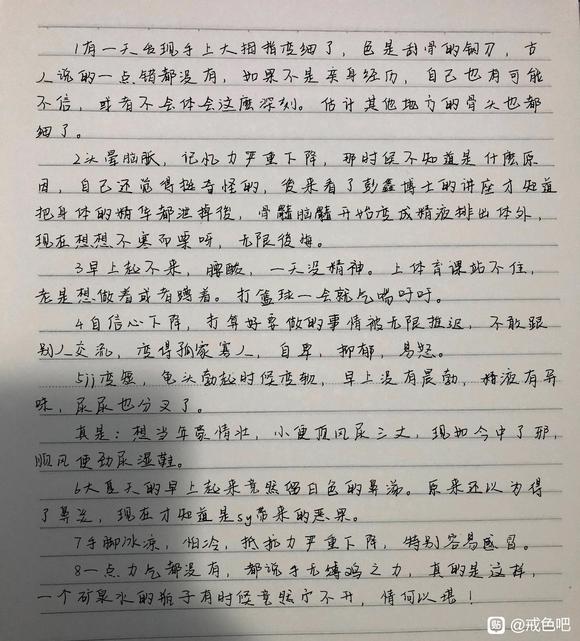 1有一天发现手上大拇指变细了，色是刮骨的钢刀，古
人说的一点错都没有，如果不是亲身经历，自己也有可能
不信，或者不会体会这麽深刻。估计其他地方的骨头也都
细了。
2头晕脑胀，记忆力严重下降，那时候不知道是什麽原
因，自己还觉得挺奇怪的，後来看了彭鑫博士的讲座才知道
把身体的精华都泄掉後，骨髓脑髓开始变成精液排出体外，
现在想想不寒而栗呀，无限後悔。
3早上起不来，腰酸，一天没精神。上体育课站不住，
老是想做着或者蹲着。打篮球一会就气喘吁吁。
4自信心下降，打算好要做的事情被无限推迟，不敢跟
别人交流，变得孤家寡人，自卑，抑郁，易怒。
5jj变短，龟头勃起时候变软，早上没有晨勃，精液有异
味，尿尿也分叉了。
真是：想当年豪情壮，小便顶风尿三丈，现如今中了邪，
顺风使劲尿湿鞋。
6大夏天的早上起来竟然留白色的鼻涕。原来还以为得
了鼻炎，现在才知道是sy带来的恶果。
7手脚冰凉，怕冷，抵抗力严重下降，特别容易感冒。
8一点力气都没有，都说手无缚鸡之力，真的是这样，
一个矿泉水的瓶子有时候竟然拧不开，情何以堪！
贴 @戒色吧